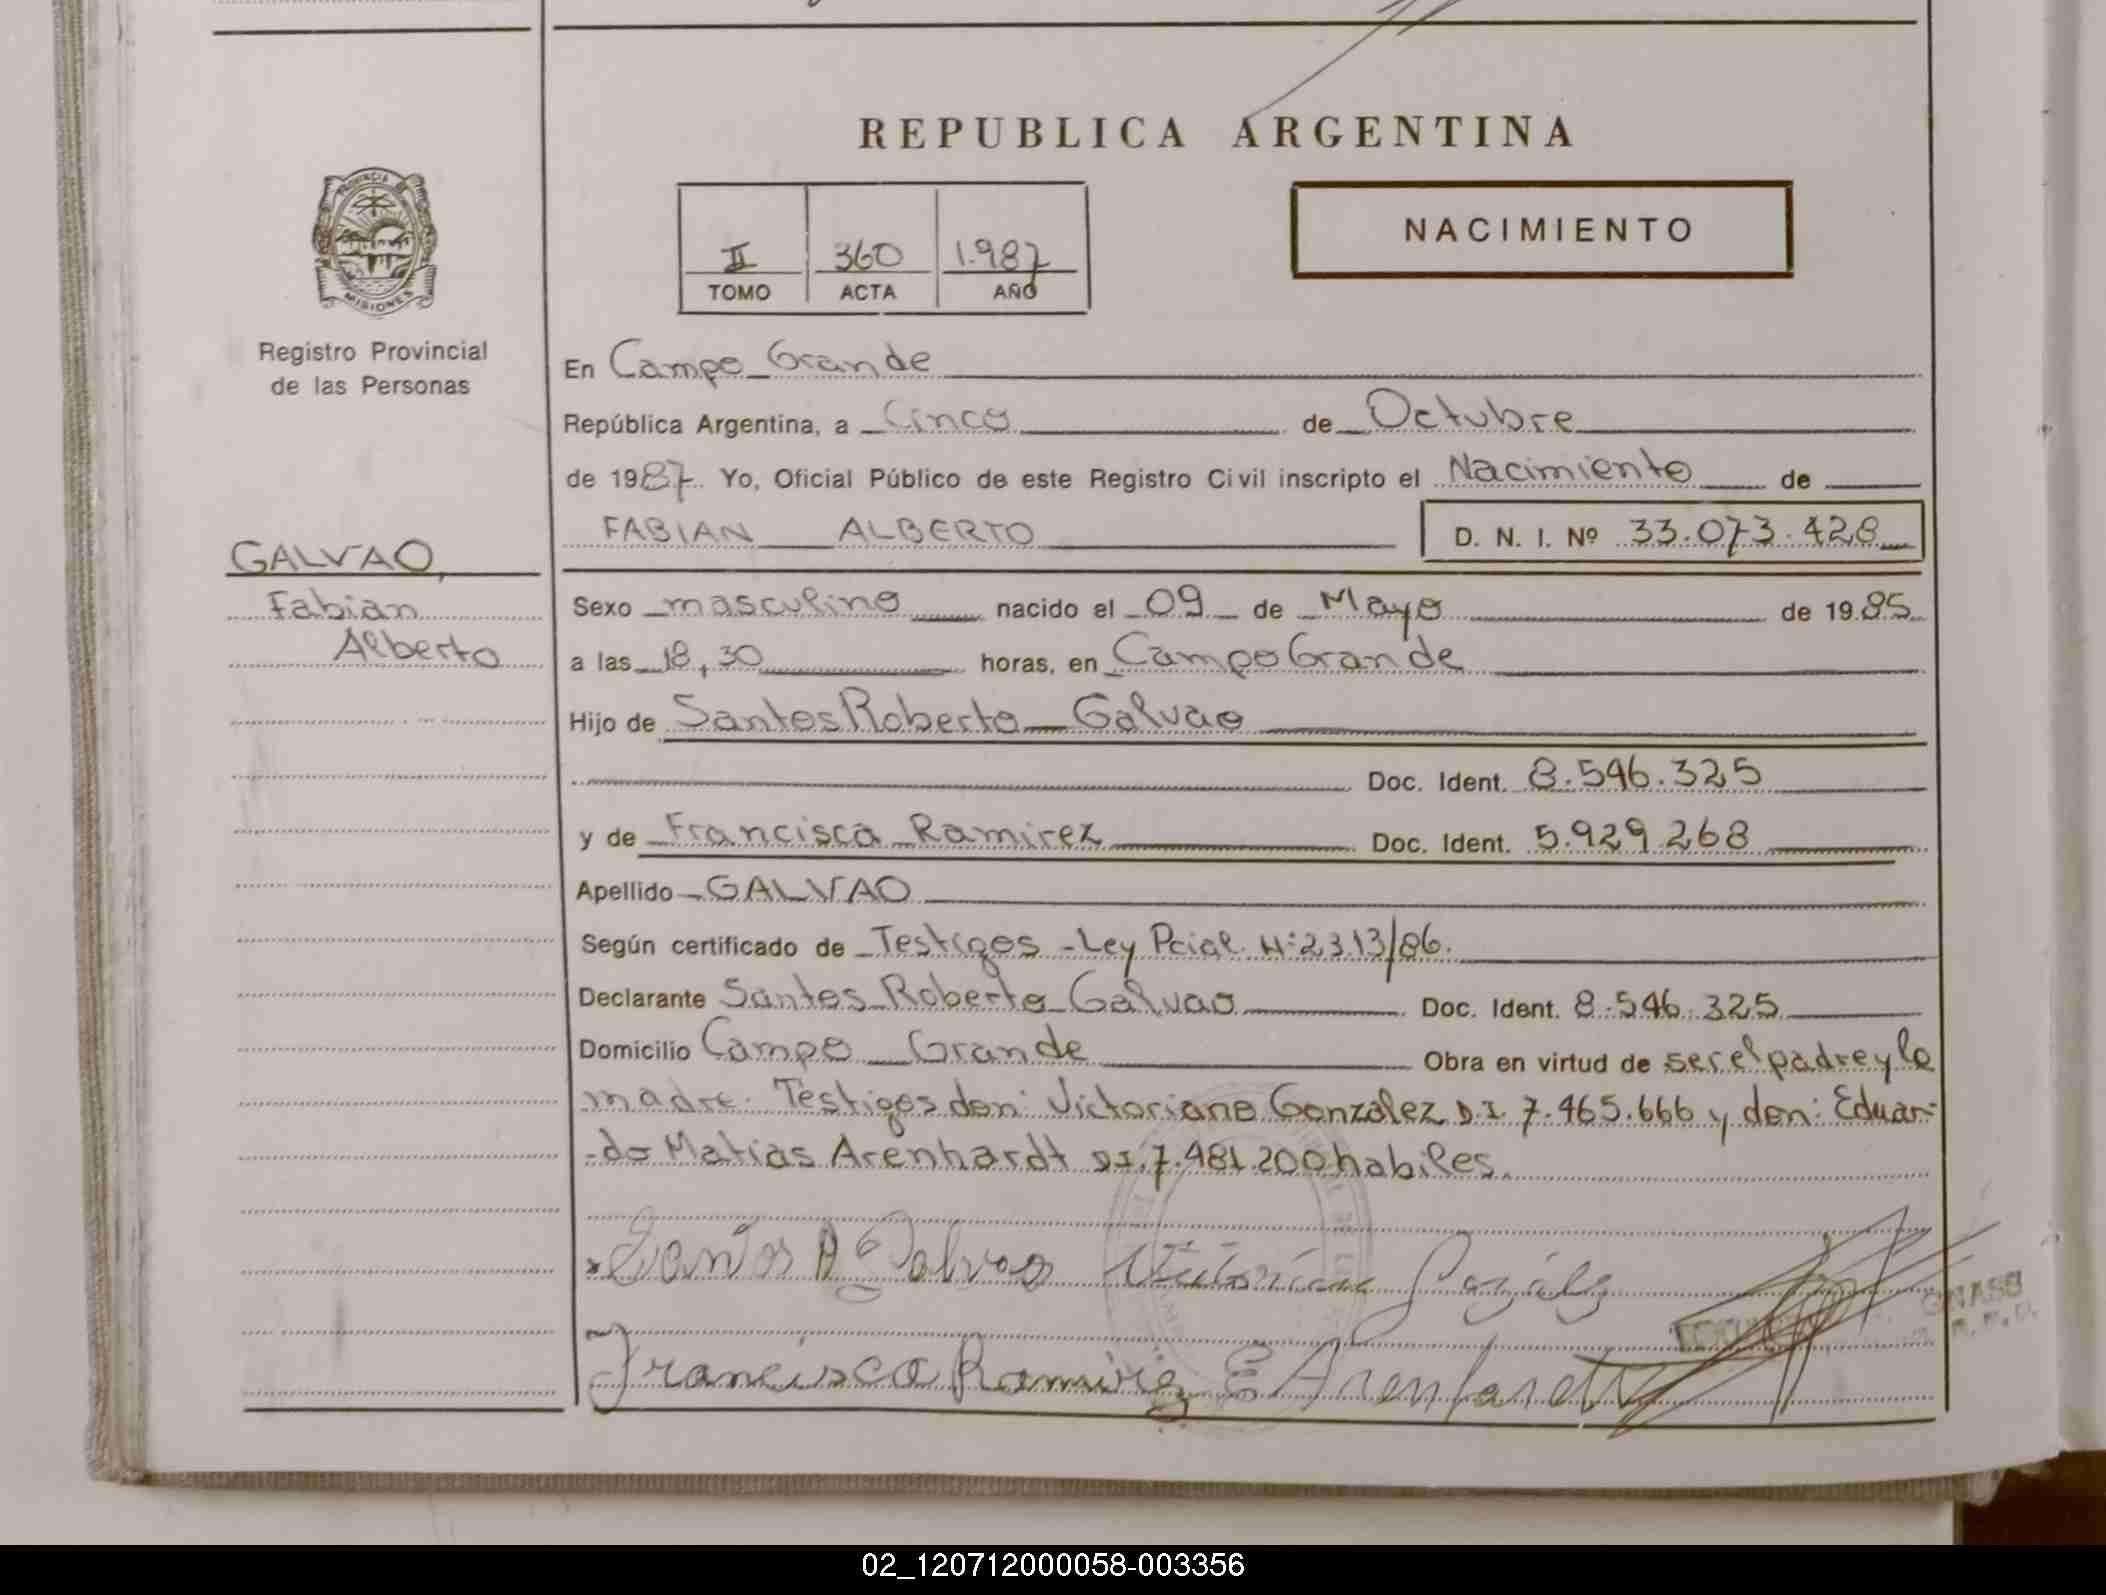 REPUBLICA ARGENTINA
II 360 1.987
TOMO ACTA AÑO
NACIMIENTO
PROVINCIA DE
MISIONES
Registro Provincial
de las Personas
GALVAO,
Fabian
Alberto
En Campo Grande
República Argentina, a Cinco de Octubre
de 1987. Yo, Oficial Público de este Registro Civil inscripto el Nacimiento de
FABIAN ALBERTO D. N. I. Nº 33.073.428
Sexo masculino nacido el 09 de Mayo de 1985
a las 18,30 horas, en Campo Grande
Hijo de Santos Roberto Galvao
Doc. Ident. 8.546.325
y de Francisca Ramirez Doc. Ident. 5.929.268
Apellido GALVAO
Según certificado de Testigos - Ley Pcial. Nº 2313/86.
Declarante Santos Roberto Galvao Doc. Ident. 8.546.325
Domicilio Campo Grande Obra en virtud de ser el padre y la
madre. Testigos don: Victoriano Gonzalez D.I. 7.465.666 y don: Eduar-
-do Matias Arenhardt D.I. 7.481.200 habiles.
Santos R Galvao Victoriano Gonzalez
Francisca Ramirez E Arenhardt
02_120712000058-003356